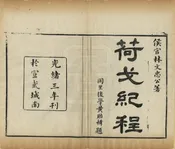 侯官林文忠公著
荷戈紀程
同里後學黃聯禧題
光緒三年刊
於宣武城南